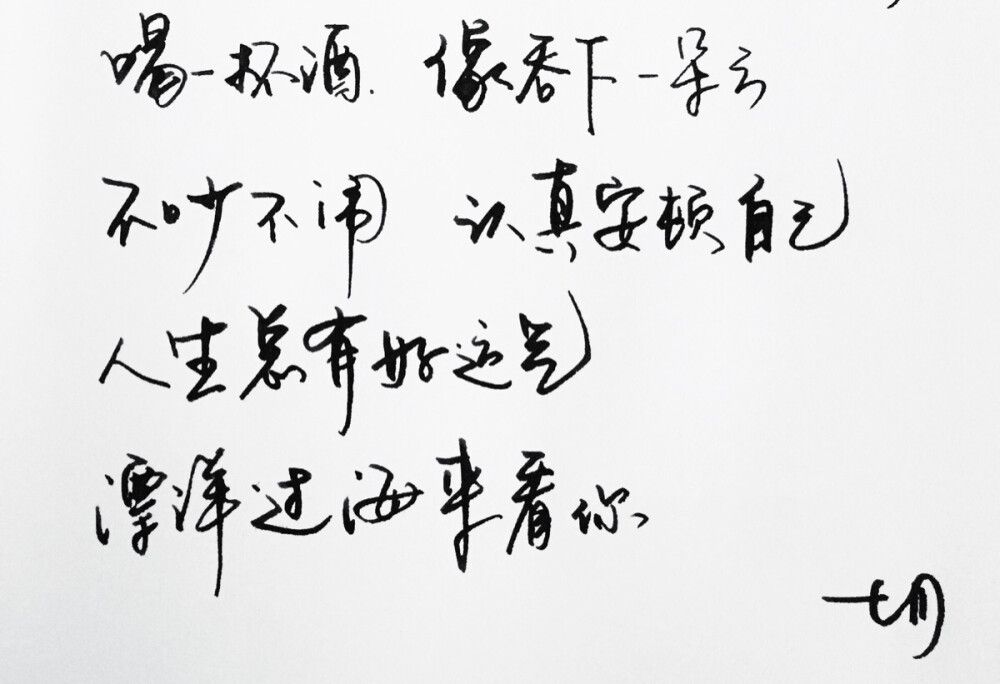 喝一杯酒 像吞下一朵云
不吵不闹 认真安顿自己
人生总有好运气
漂洋过海来看你